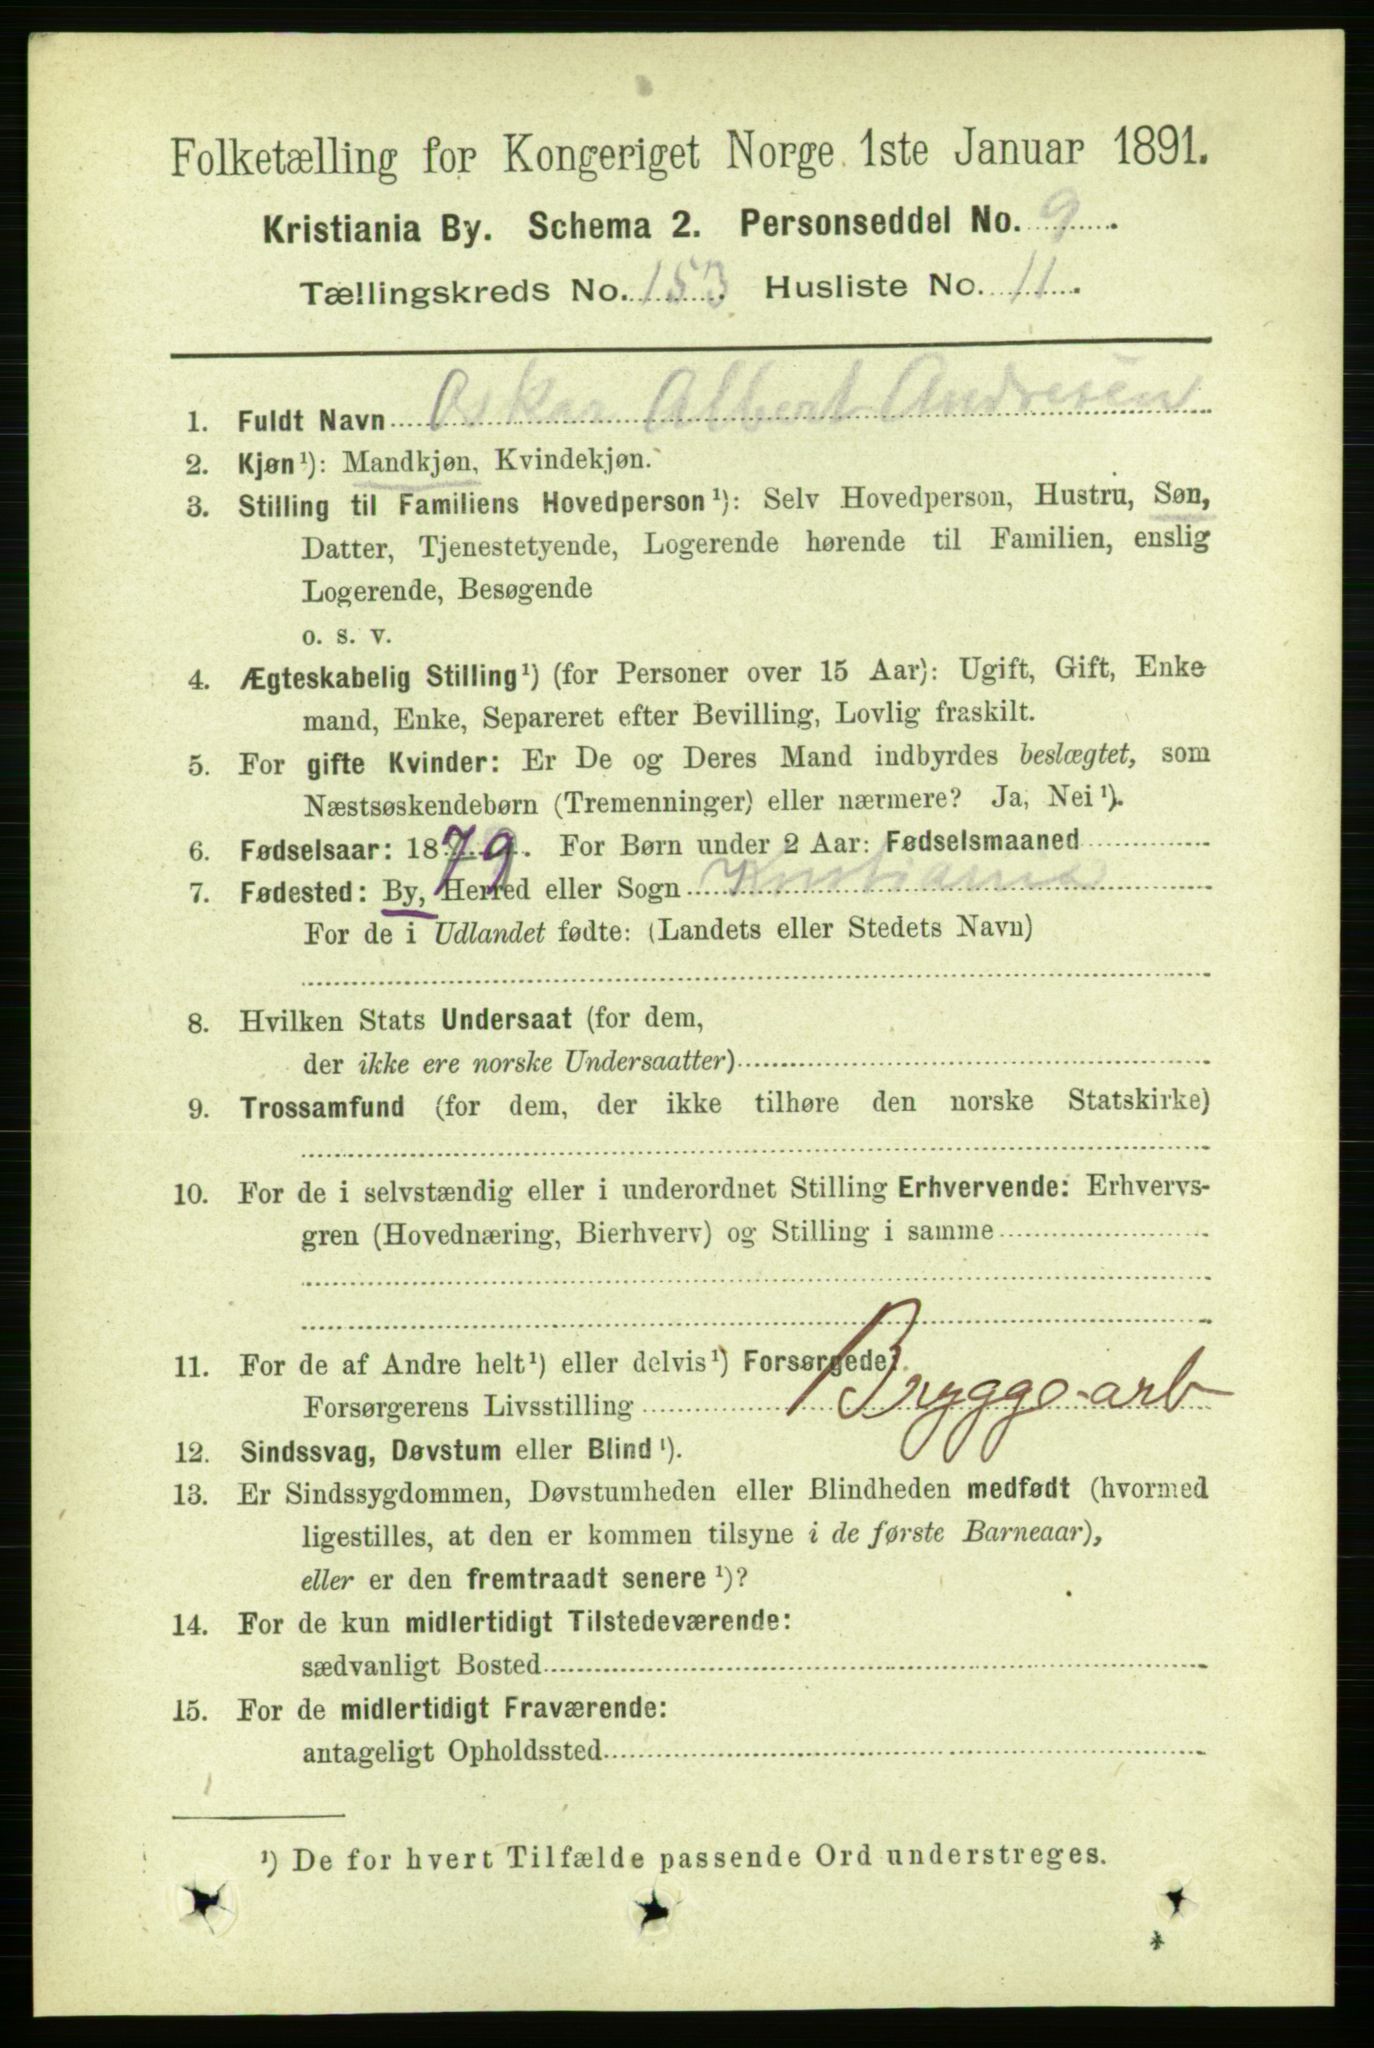 Folketælling for Kongeriget Norge 1ste Januar 1891.
Kristiania By. Schema 2. Personseddel No. 9.
Tællingskreds No. 153. Husliste No. 11.
1. Fuldt Navn Oskar Albert Andresen
2. Kjøn¹): Mandkjøn, Kvindekjøn.
3. Stilling til Familiens Hovedperson¹): Selv Hovedperson, Hustru, Søn,
Datter, Tjenestetyende, Logerende hørende til Familien, enslig
Logerende, Besøgende
o. s. v.
4. Ægteskabelig Stilling¹) (for Personer over 15 Aar): Ugift, Gift, Enke
mand, Enke, Separeret efter Bevilling, Lovlig fraskilt.
5. For gifte Kvinder: Er De og Deres Mand indbyrdes beslægtet, som
Næstsøskendebørn (Tremenninger) eller nærmere? Ja, Nei¹).
6. Fødselsaar: 1879. For Børn under 2 Aar: Fødselsmaaned
7. Fødested: By, Herred eller Sogn Kristiania
For de i Udlandet fødte: (Landets eller Stedets Navn)
8. Hvilken Stats Undersaat (for dem,
der ikke ere norske Undersaatter)
9. Trossamfund (for dem, der ikke tilhøre den norske Statskirke)
10. For de i selvstændig eller i underordnet Stilling Erhvervende: Erhvervs-
gren (Hovednæring, Bierhverv) og Stilling i samme
11. For de af Andre helt¹) eller delvis¹) Forsørgede:
Forsørgerens Livsstilling Bryggearb
12. Sindssvag, Døvstum eller Blind¹).
13. Er Sindssygdommen, Døvstumheden eller Blindheden medfødt (hvormed
ligestilles, at den er kommen tilsyne i de første Barneaar),
eller er den fremtraadt senere¹)?
14. For de kun midlertidigt Tilstedeværende:
sædvanligt Bosted
15. For de midlertidigt Fraværende:
antageligt Opholdssted
¹) De for hvert Tilfælde passende Ord understreges.